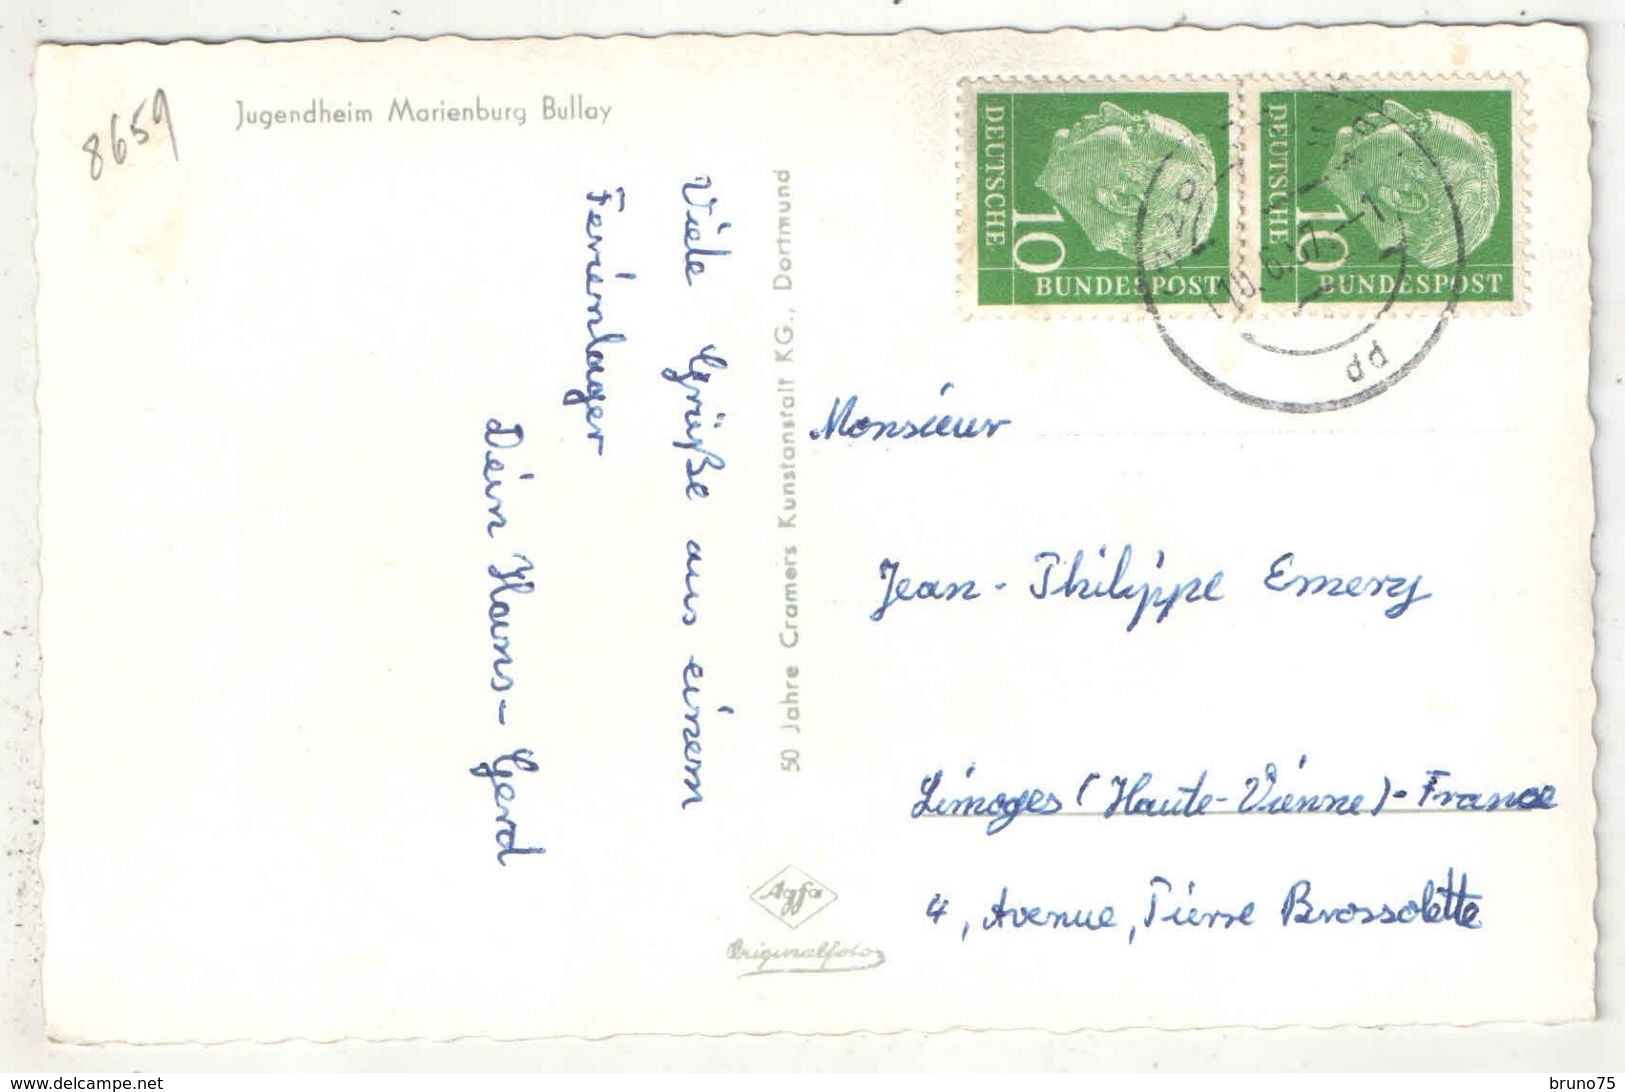 8659
Jugendheim Marienburg Bullay
Viele Grüße aus einem
Ferienlager
Dein Hans-Gerd
50 Jahre Cramers Kunstanstalt KG., Dortmund
Agfa
Originalfoto
DEUTSCHE
10
BUNDESPOST
DEUTSCHE
10
BUNDESPOST
Monsieur
Jean-Philippe Emery
Limoges (Haute-Vienne)-France
4, Avenue, Pierre Brossolette
www.delcampe.net
bruno75